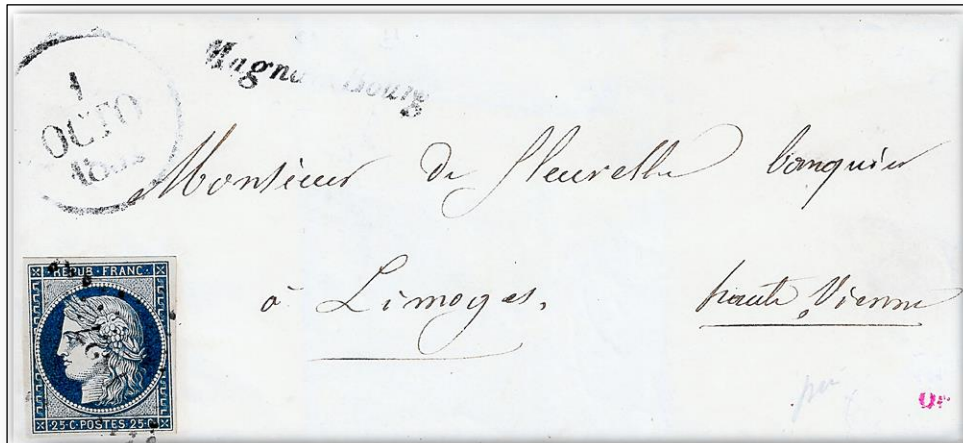 1
OCTO
Monsieur de fleurelle banquier
à Limoges.
haute Vienne
REPUB·FRANC·
25·C·POSTES·25·C·